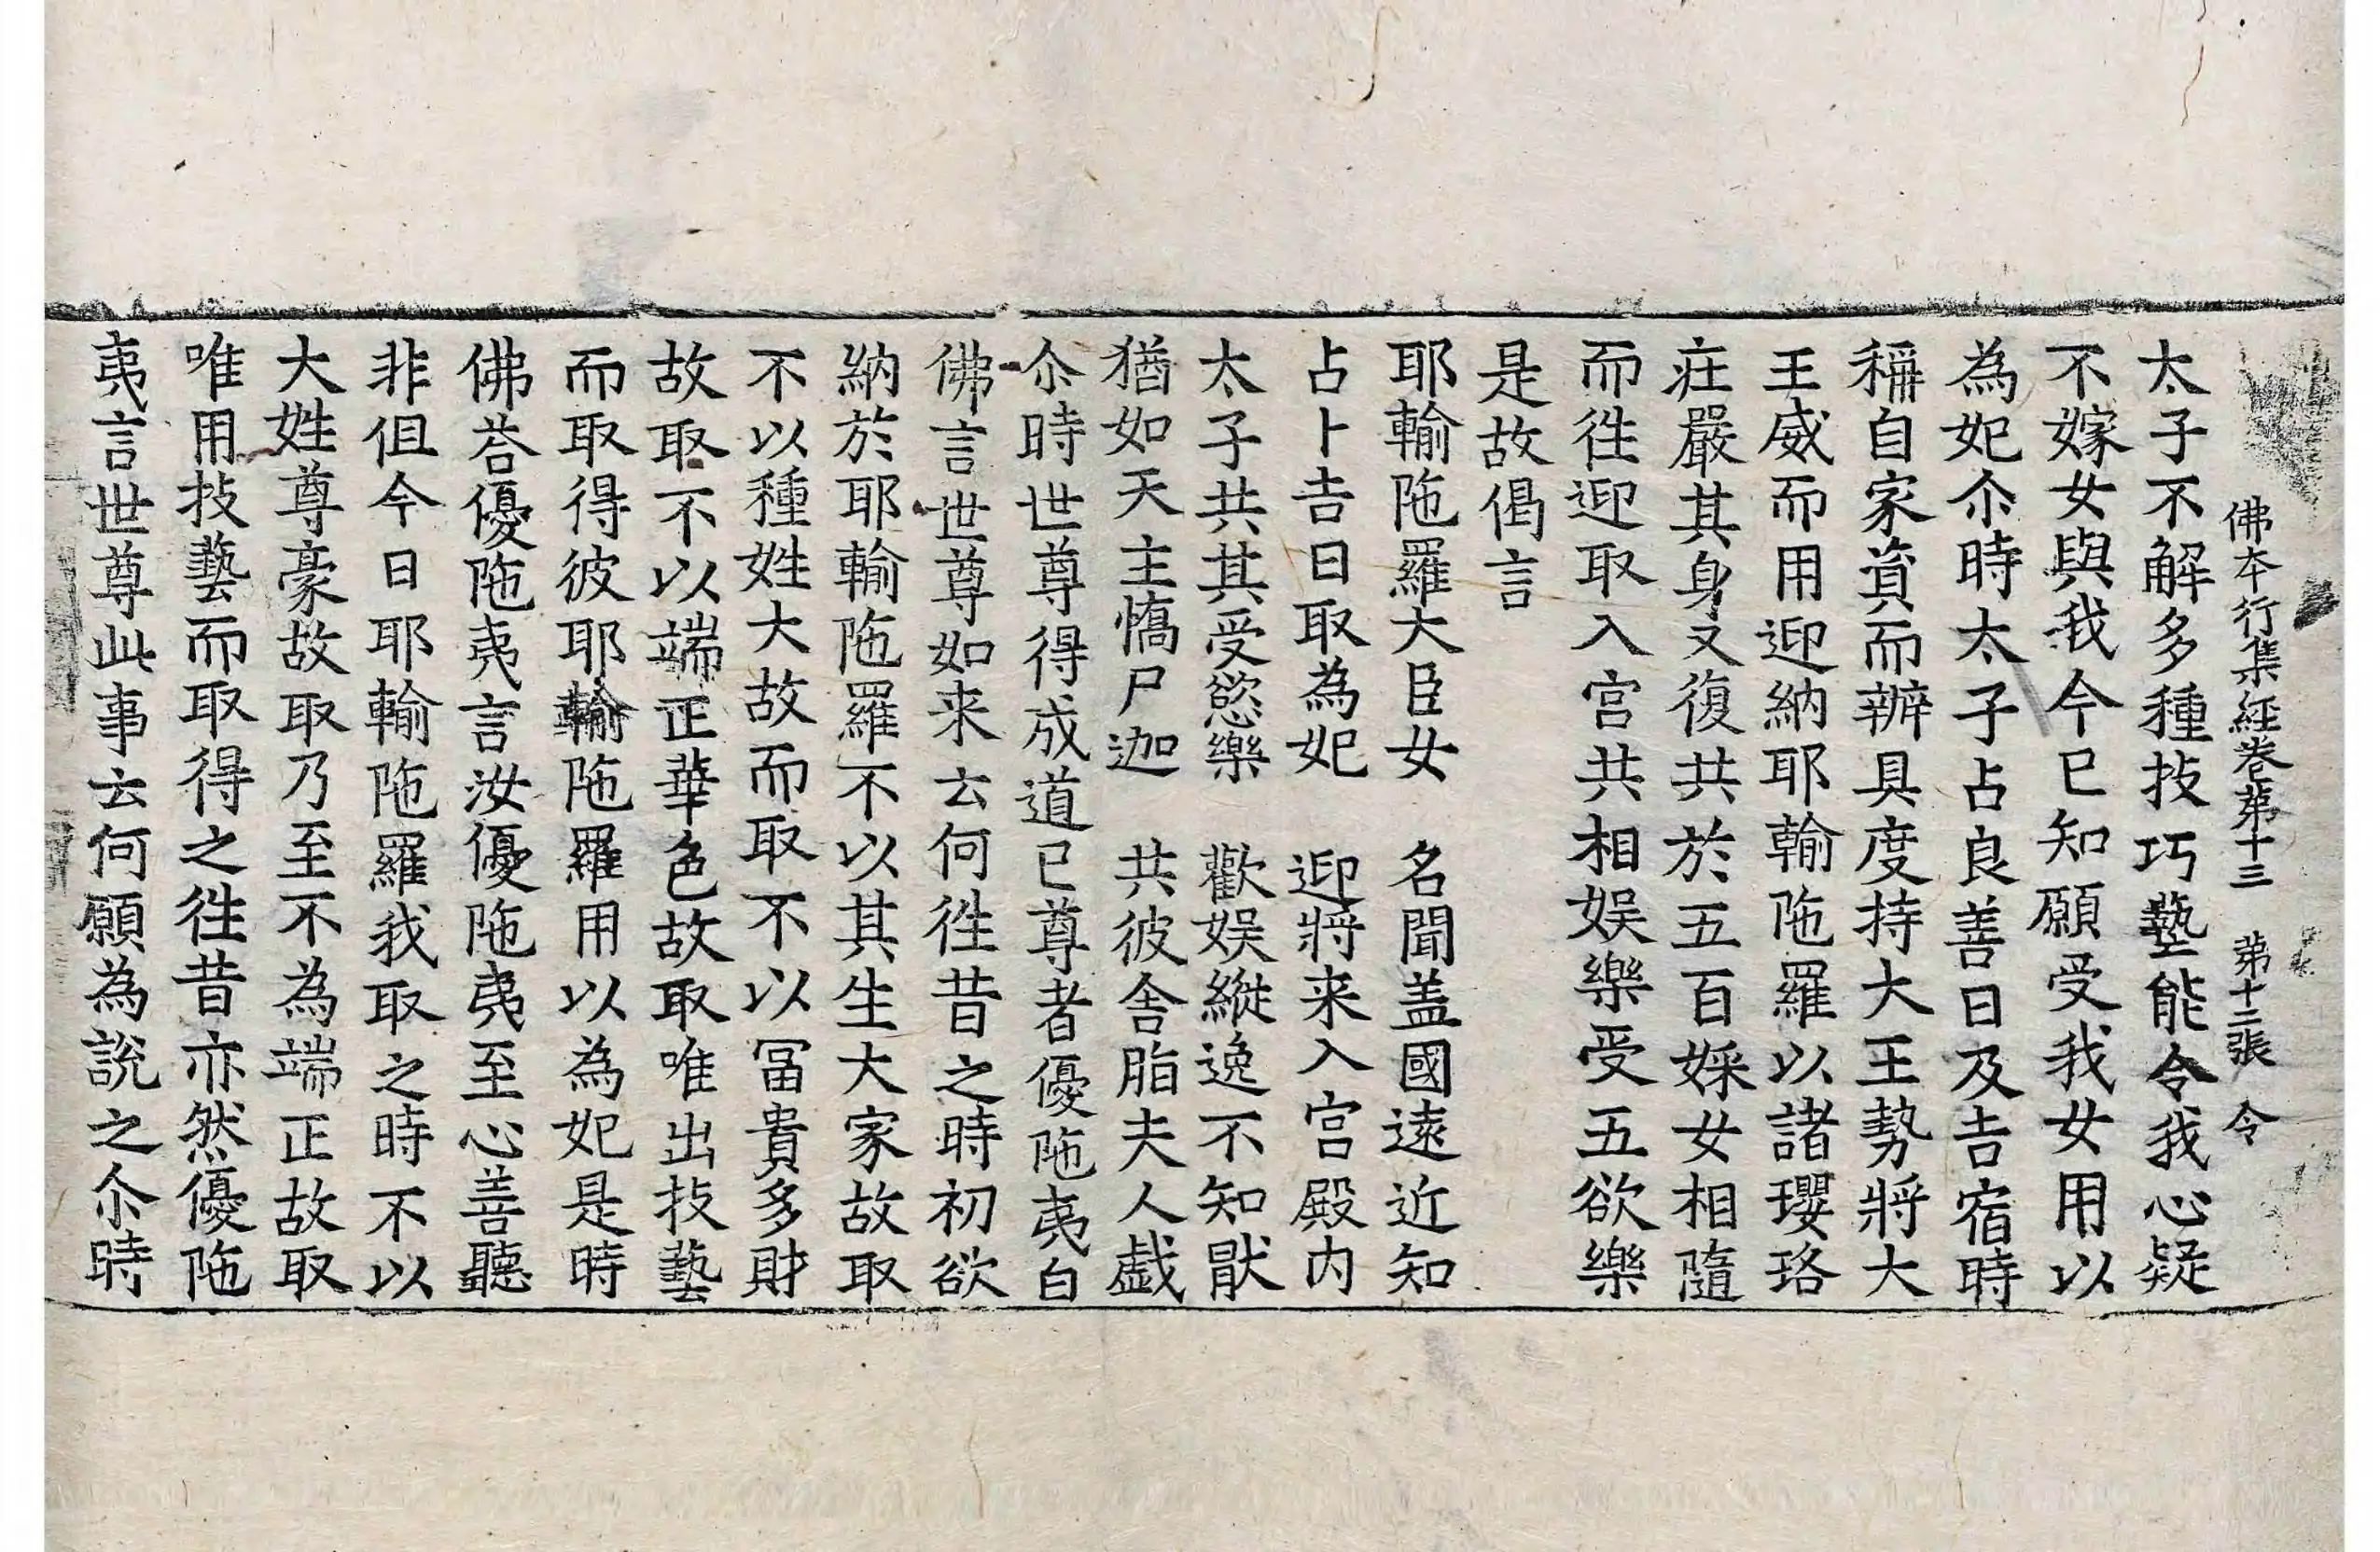 佛本行集經卷第十三 第十二張 令
太子不解多種技巧藝能令我心疑
不嫁女與我今已知願受我女用以
為妃尒時太子占良善日及吉宿時
稱自家資而辦具度持大王勢將大
王威而用迎納耶輸陁羅以諸瓔珞
莊嚴其身又復共於五百婇女相隨
而往迎取入宮共相娛樂受五欲樂
是故偈言
耶輸陁羅大臣女 名聞盖國遠近知
占卜吉日取為妃 迎將来入宮殿內
太子共其受慾樂 歡娛縱逸不知猒
猶如天主憍尸迦 共彼舍脂夫人戱
尒時世尊得成道已尊者優陁夷白
佛言世尊如来云何往昔之時初欲
納於耶輸陁羅不以其生大家故取
不以種姓大故而取不以冨貴多財
故取不以端正華色故取唯出技藝
而取得彼耶輸陁羅用以為妃是時
佛荅優陁夷言汝優陁夷至心善聽
非但今日耶輸陁羅我取之時不以
大姓尊豪故取乃至不為端正故取
唯用技藝而取得之往昔亦然優陁
夷言世尊此事云何願為說之尒時